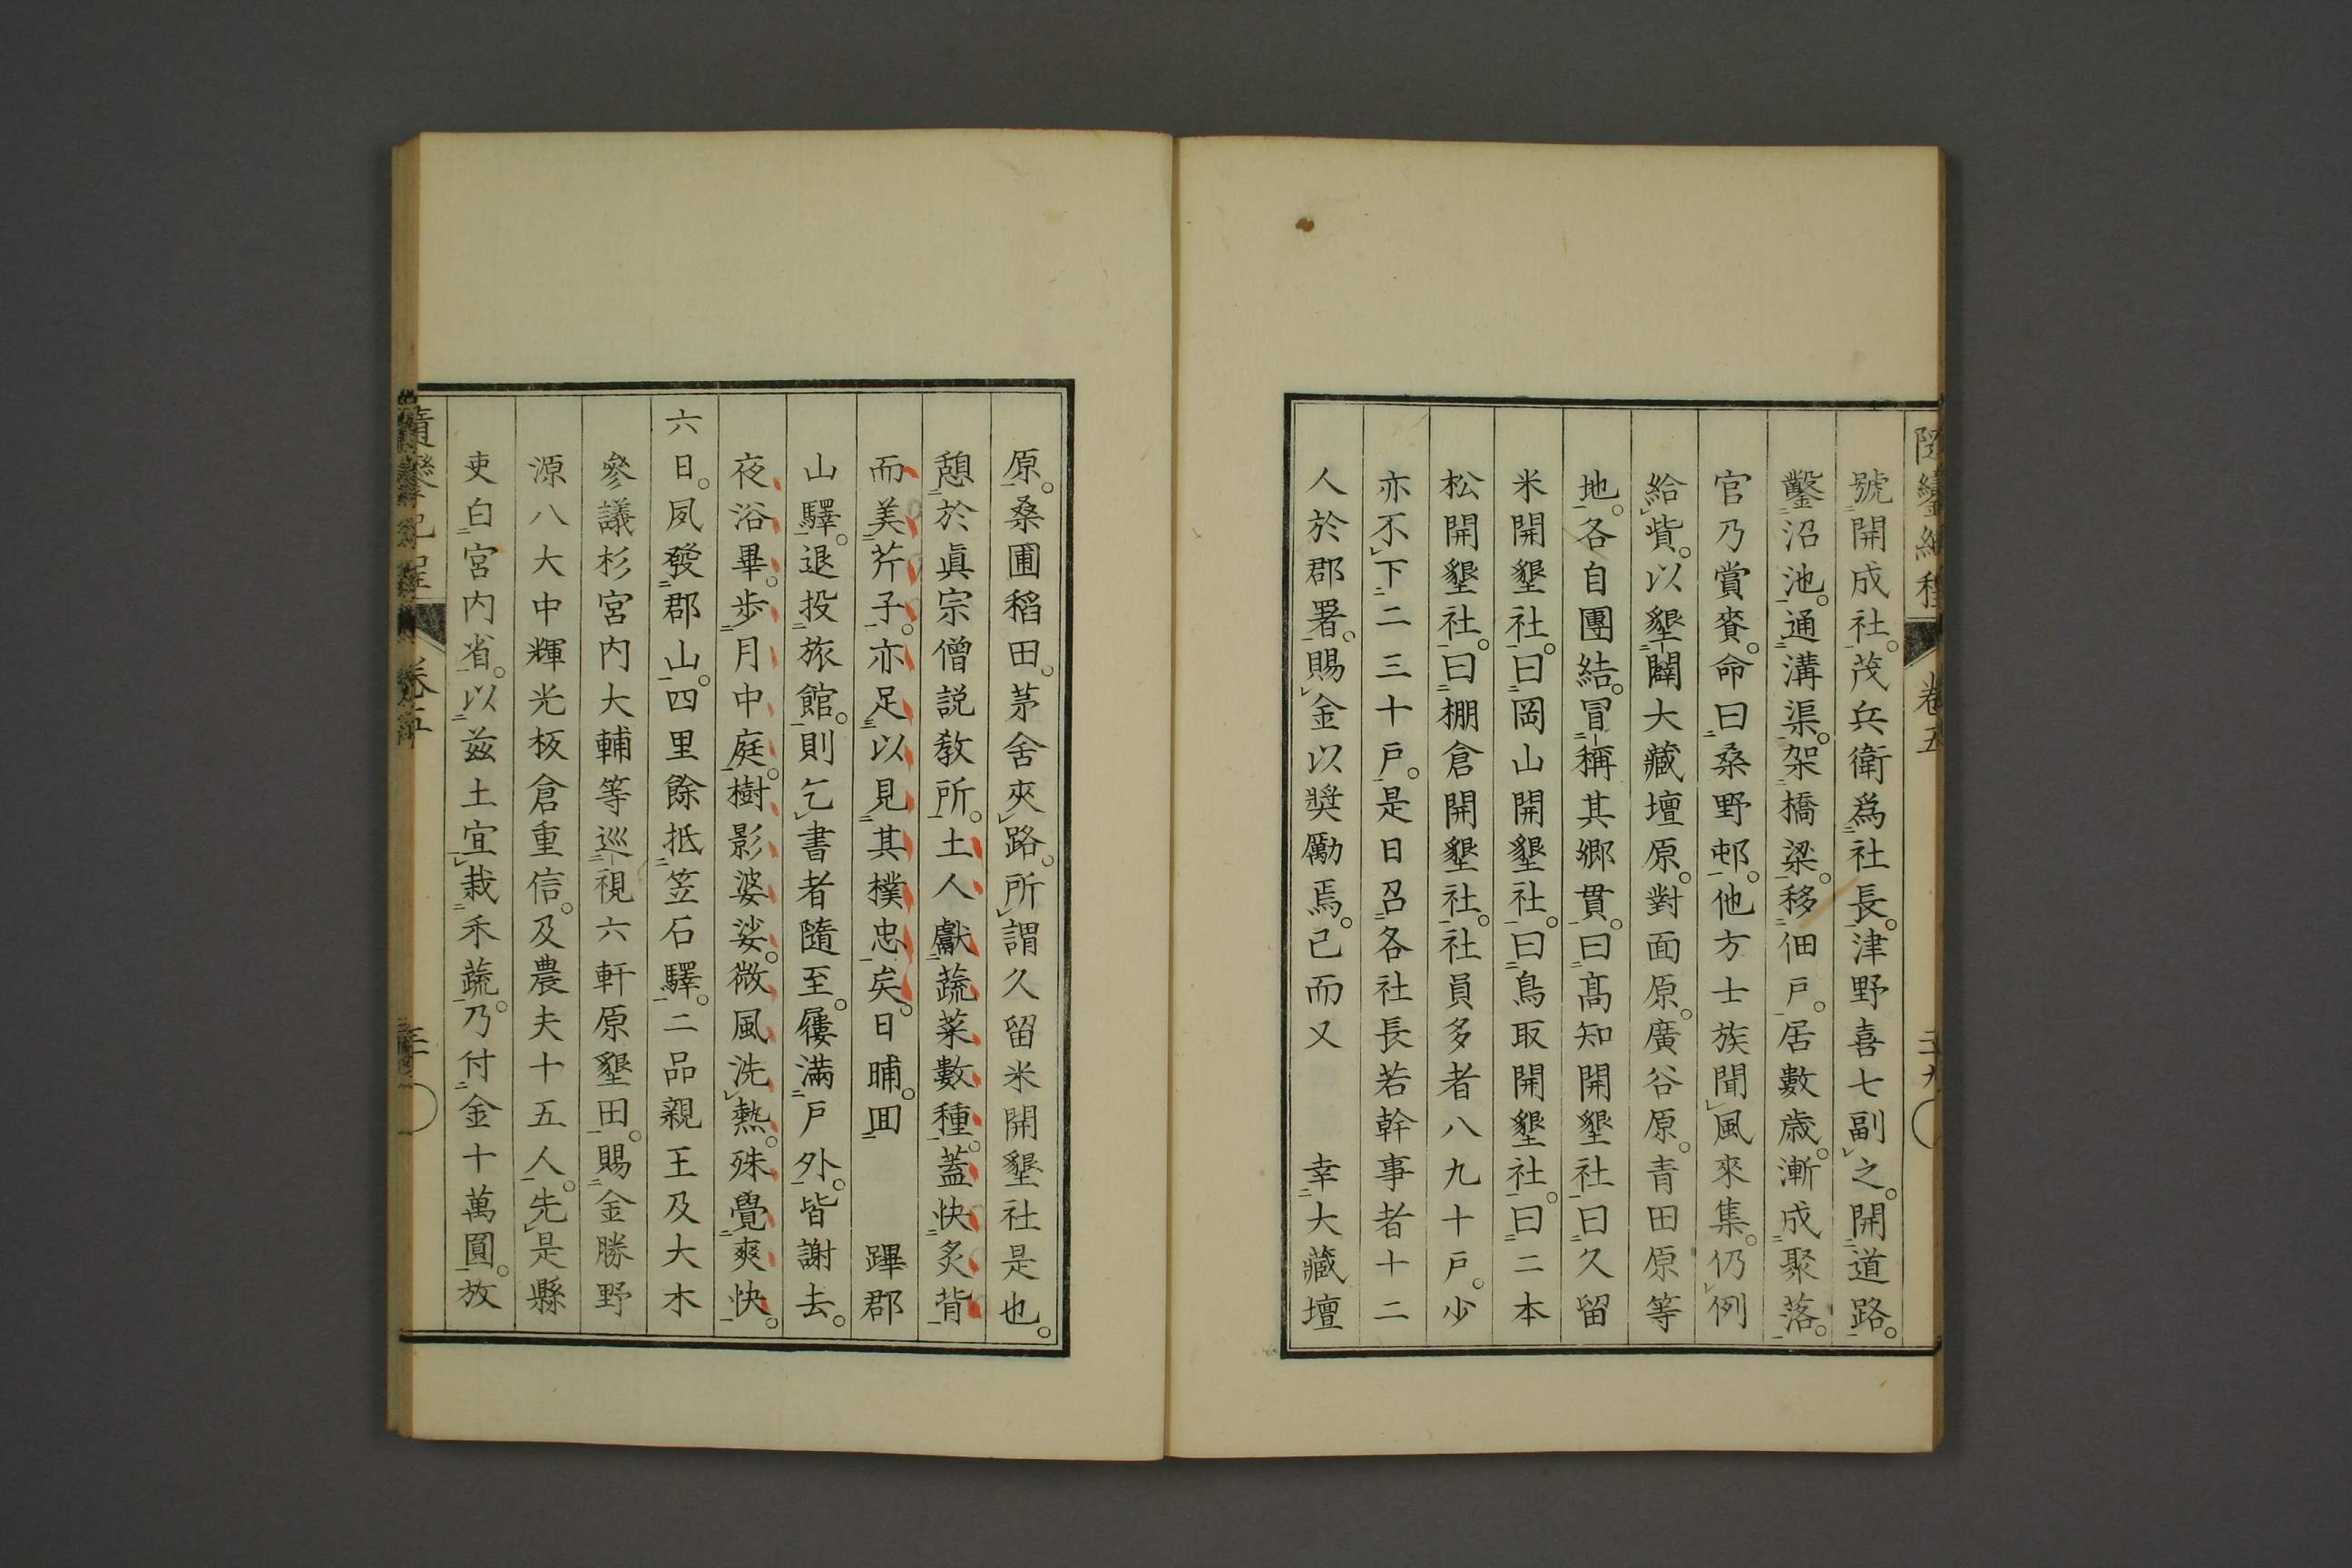 號開成社。茂兵衛爲社長。津野喜七副之。開道路。
鑿沼池。通溝渠。架橋梁。移佃戶。居數歳。漸成聚落。
官乃賞賚。命曰桑野邨。他方士族聞風來集。仍例
給貲。以墾闢大藏壇原。對面原。廣谷原。青田原等
地。各自團結。冒稱其鄉貫。曰髙知開墾社曰久留
米開墾社。曰岡山開墾社。曰鳥取開墾社。曰二本
松開墾社。曰棚倉開墾社。社員多者八九十戶。少
亦不下二三十戶。是日召各社長若幹事者十二
人於郡署。賜金以奬勵焉。已而又 幸大藏壇
原。桑圃稻田。茅舍夾路。所謂久留米開墾社是也。
憩於眞宗僧説教所。土人獻蔬菜數種。蓋快炙背
而美芹子。亦足以見其樸忠矣。日晡。囬 蹕郡
山驛。退投旅館。則乞書者隨至。屨滿戶外。皆謝去。
夜浴畢。歩月中庭。樹影婆娑。微風洗熱。殊覺爽快。
六日。夙發郡山。四里餘抵笠石驛。二品親王及大木
參議杉宮内大輔等巡視六軒原墾田。賜金勝野
源八大中輝光板倉重信。及農夫十五人。先是縣
吏白宮内省。以兹土宜栽禾蔬。乃付金十萬圓。放
卷五